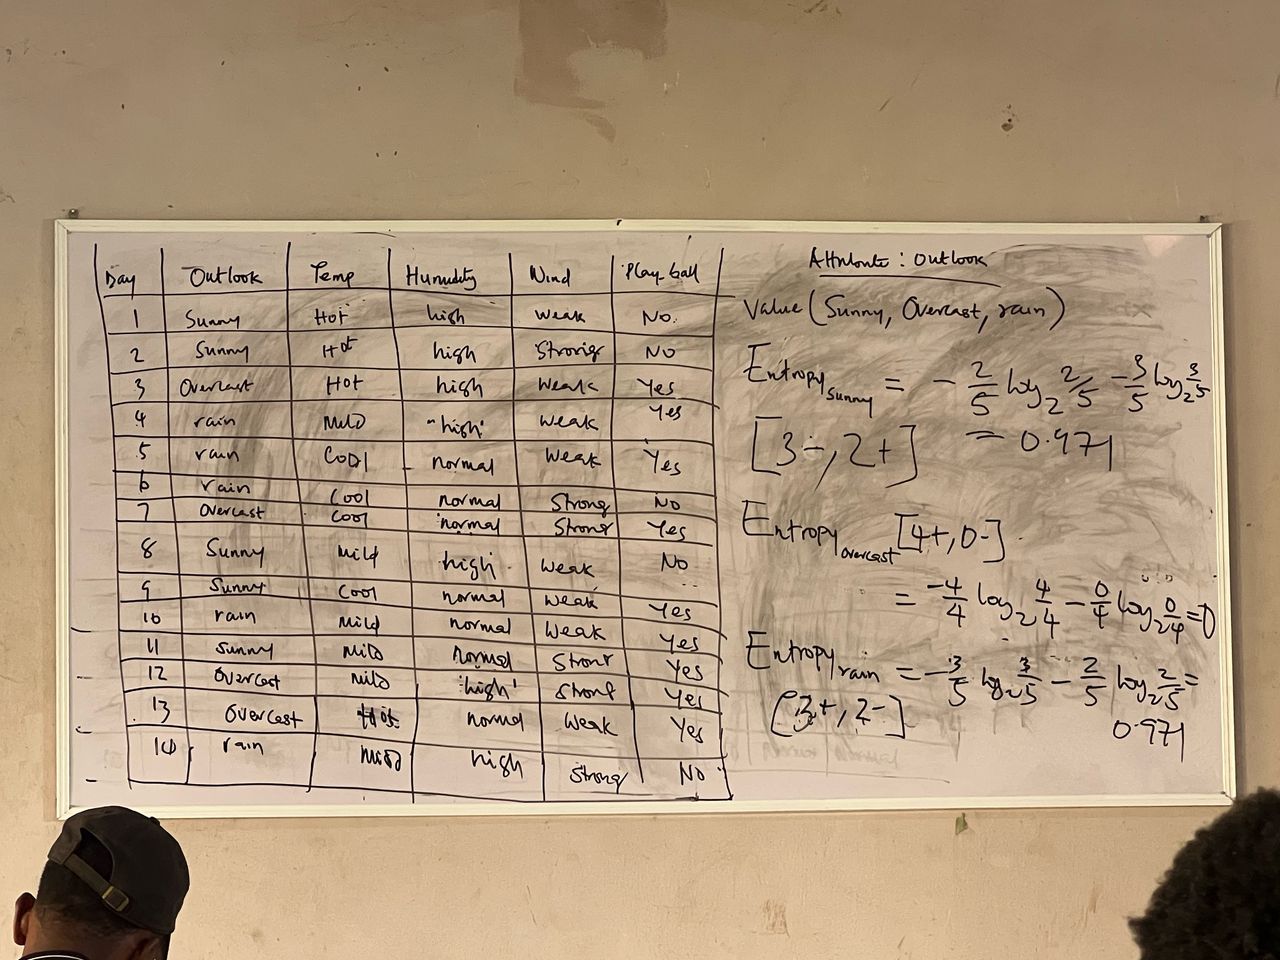 Day Outlook Temp Humidity Wind Play-ball
1 Sunny Hot high weak No
2 Sunny Hot high Strong No
3 Overcast Hot high weak Yes
4 rain Mild "high" weak Yes
5 rain Cool normal weak Yes
6 rain Cool normal Strong No
7 Overcast Cool normal Strong Yes
8 Sunny Mild high weak No
9 Sunny Cool normal weak Yes
10 rain Mild normal weak Yes
11 Sunny Mild normal Strong Yes
12 Overcast Mild high Strong Yes
13 Overcast Hot normal weak Yes
14 rain Mild high Strong No
Attribute: Outlook
Value (Sunny, Overcast, rain)
Entropy Sunny = - 2/5 log₂ 2/5 - 3/5 log₂ 3/5
[3-, 2+] = 0.971
Entropy overcast [4+, 0-]
= -4/4 log₂ 4/4 - 0/4 log₂ 0/4 = 0
Entropy rain = - 3/5 log₂ 3/5 - 2/5 log₂ 2/5 =
[3+, 2-] 0.971